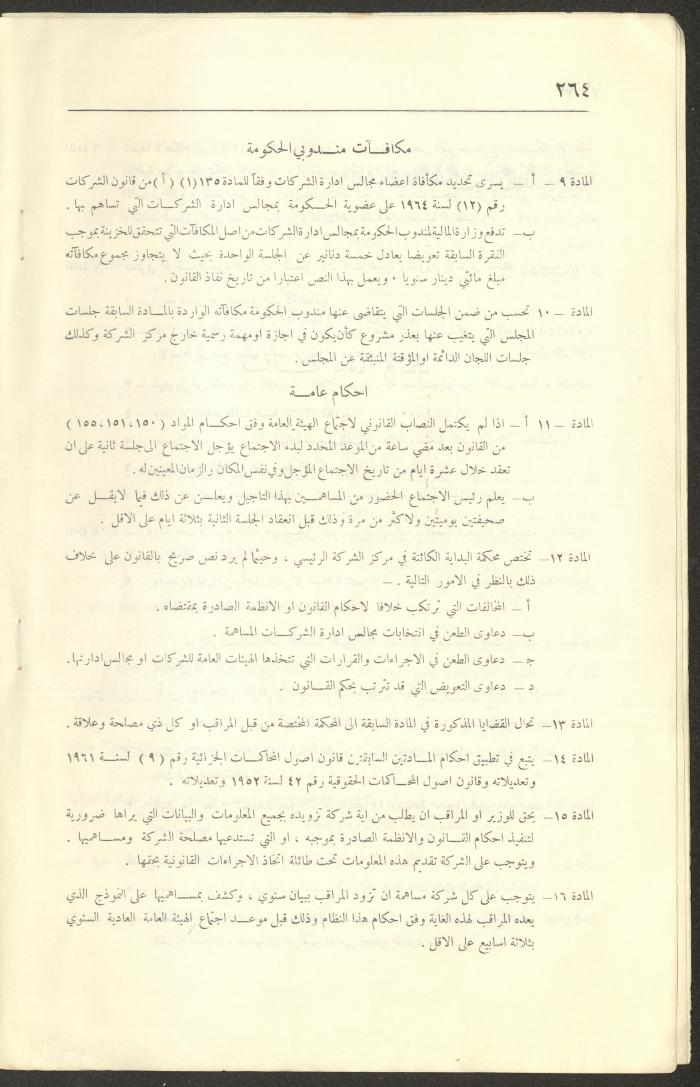 ٢٦٤
مكافــآت منــدوبي الحكومة
المادة ٩ ـ أ ـ يسرى تحديد مكأفاة اعضاء مجالس ادارة الشركات وفقاً للمادة ١٣٥(١) (أ) من قانون الشركات
رقم (١٢) لسنة ١٩٦٤ على عضوية الحــكومة بمجالس ادارة الشركــات التي تساهم بها .
ب ـ تدفع وزارة المالية لمندوب الحكومة بمجالس ادارة الشركات من اصل المكافآت التي تتحقق للخزينة بموجب
الفقرة السابقة تعويضا يعادل خمسة دنانير عن الجلسة الواحدة بحيث لا يتجاوز مجموع مكافآته
مبلغ مائتي دينار سنويا . ويعمل بهذا النص اعتبارا من تاريخ نفاذ القانون .
المادة ـ ١٠ تحسب من ضمن الجلسات التي يتقاضى عنها مندوب الحكومة مكافآته الواردة بالمــادة السابقة جلسات
المجلس التي يتغيب عنها بعذر مشروع كأن يكون في اجازة او مهمة رسمية خارج مركز الشركة وكذلك
جلسات اللجان الدائمة او المؤقتة المنبثقة عن المجلس .
احكام عامــة
المادة ـ ١١ أ ـ اذا لم يكتمل النصاب القانوني لاجتماع الهيئة العامة وفق احكــام المواد (١٥٠،١٥١،١٥٥)
من القانون بعد مضي ساعة من الموعد المحدد لبدء الاجتماع يؤجل الاجتماع الى جلسة ثانية على ان
تعقد خلال عشرة ايام من تاريخ الاجتماع المؤجل وفي نفس المكان والزمان المعينين له .
ب ـ يعلم رئيس الاجتماع الحضور من المساهمــين بهذا التاجيل ويعلــن عن ذلك فيما لايقــل عن
صحيفتين يوميتين ولاكثر من مرة وذلك قبل انعقاد الجلسة الثانية بثلاثة ايام على الاقل .
المادة ١٢ـ تختص محكمة البداية الكائنة في مركز الشركة الرئيسي ، وحيثما لم يرد نص صريح بالقانون على خلاف
ذلك بالنظر في الامور التالية . ـ
أ ـ المخالفات التي ترتكب خلافا لاحكام القانون او الانظمة الصادرة بمقتضاه .
ب ـ دعاوى الطعن في انتخابات مجالس ادارة الشركــات المساهمة .
ج ـ دعاوى الطعن في الاجراءات والقرارات التي تتخذها الهيئات العامة للشركات او مجالس ادارتها .
د ـ دعاوى التعويض التي قد تترتب بحكم القــانون .
المادة ١٣ـ تحال القضايا المذكورة في المادة السابقة الى المحكمة المختصة من قبل المراقب او كل ذي مصلحة وعلاقة .
المادة ١٤ـ يتبع في تطبيق احكام المــادتين السابقتين قانون اصول المحاكمــات الجزائية رقم (٩) لسنــة ١٩٦١
وتعديلاته وقانون اصول المحــاكمات الحقوقية رقم ٤٢ لسنة ١٩٥٢ وتعديلاته .
المادة ١٥ـ يحق للوزير او المراقب ان يطلب من اية شركة تزويده بجميع المعلومات والبيانات التي يراها ضرورية
لتنفيذ احكام القــانون والانظمة الصادرة بموجبه ، او التي تستدعيها مصلحة الشركة ومســاهميها .
ويتوجب على الشركة تقديم هذه المعلومات تحت طائلة اتخاذ الاجراءات القانونية بحقها .
المادة ١٦ـ يتوجب على كل شركة مساهمة ان تزود المراقب ببيان سنوي ، وكشف بمســاهميها على النموذج الذي
يعده المراقب لهذه الغاية وفق احكام هذا النظام وذلك قبل موعــد اجتماع الهيئة العامة العادية السنوي
بثلاثة اسابيع على الاقل .